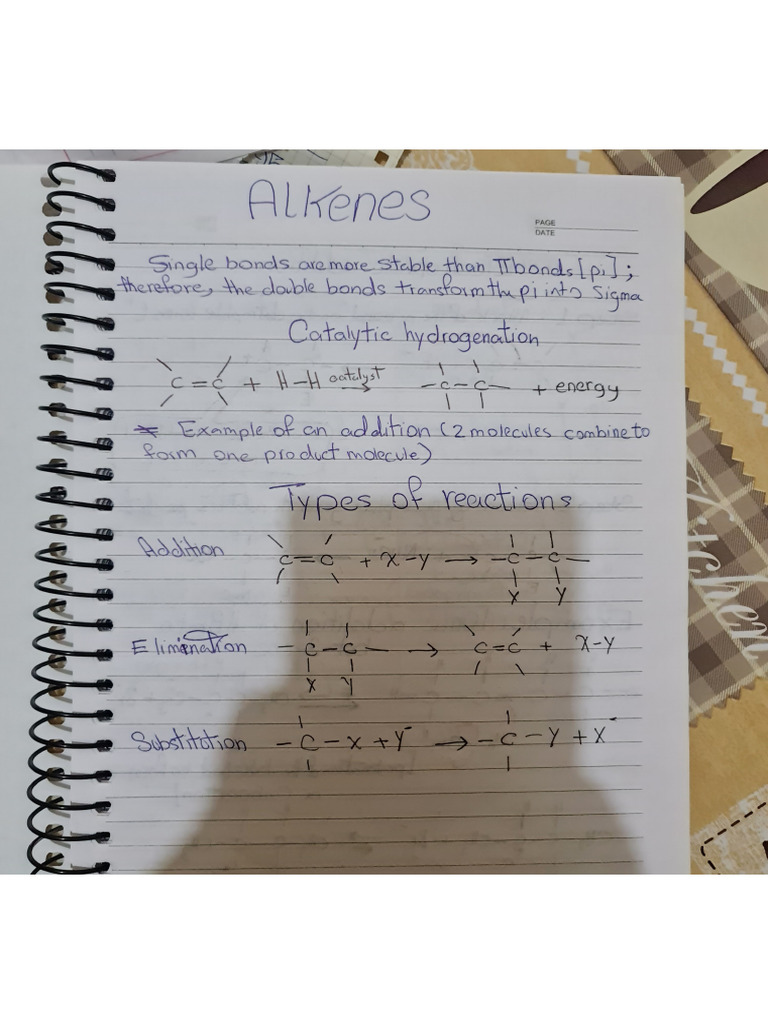 ALKenes
PAGE
DATE
Single bonds are more stable than π bonds [pi];
therefore, the double bonds transform the pi into sigma
Catalytic hydrogenation
C=C + H-H catalyst → -C-C- + energy
* Example of an addition (2 molecules combine to
form one product molecule)
Types of reactions
Addition C=C + X-Y → -C-C-
X Y
Elimination -C-C- → C=C + X-Y
X Y
Substitution -C-X + Y⁻ → -C-Y + X⁻
itchen